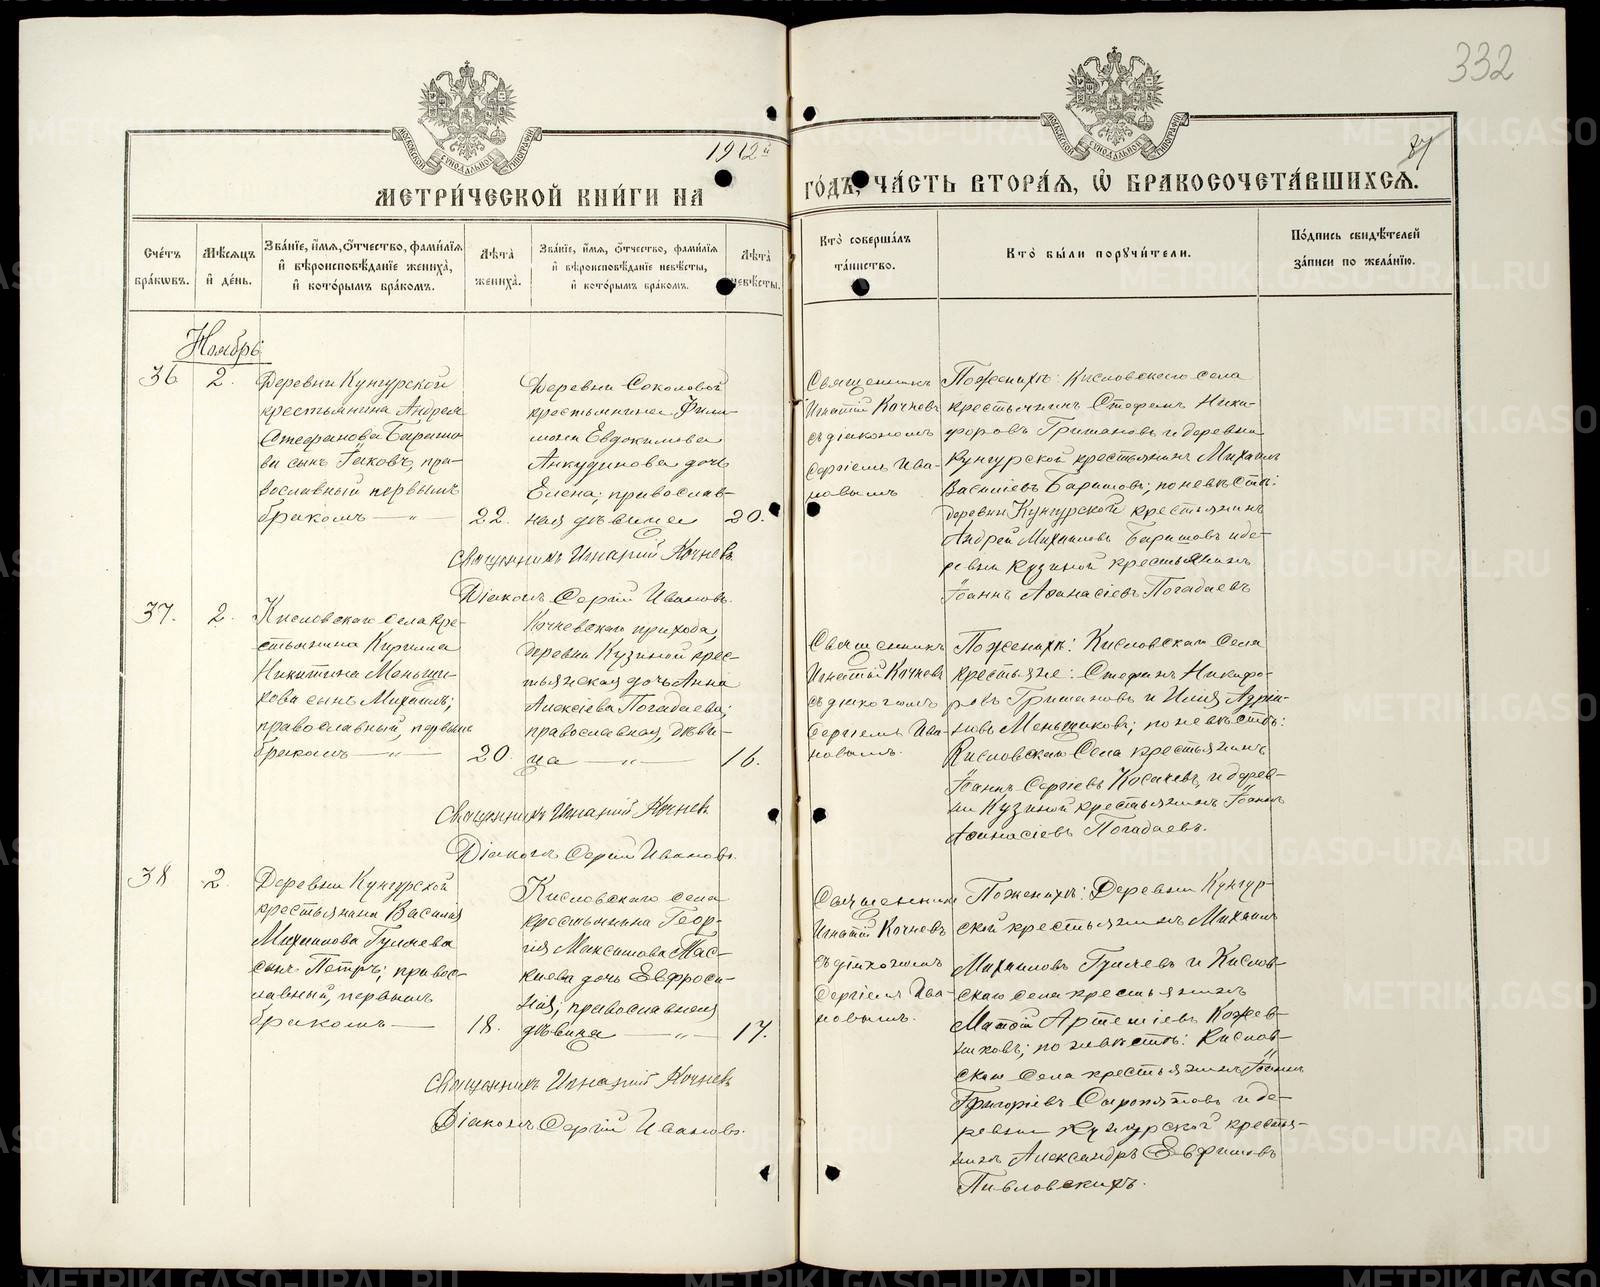 332
1912 й
87
МЕТРИ́ЧЕСКОЙ КНИ́ГИ НА
ГО́ДЪ, ЧА́СТЬ ВТОРА́Я, Ѽ БРАКОСОЧЕТА́ВШИХСЯ.
Сче́тъ бра́кѡвъ.
Мѣ́сяцъ и҆ де́нь.
Зва́нїе, и҆́мя, ѻ҆́тчество, фами́лїя и҆ вѣроисповѣ́данїе жениха̀, и҆ кото́рымъ бра́комъ.
Лѣ́та жениха̀.
Зва́нїе, и҆́мя, ѻ҆́тчество, фами́лїя и҆ вѣроисповѣ́данїе невѣ́сты, и҆ кото́рымъ бра́комъ.
Лѣ́та невѣ́сты.
Кто̀ соверша́лъ та́инство.
Кто̀ бы́ли поручи́тели.
По́дпись свидѣ́телей за́писи по жела́нїю.
Ноябрь
36
2.
Деревни Кунгурской
крестьянина Андрея
Стефанова Барашо-
ва сынъ Іаковъ, пра-
вославный первымъ
бракомъ — „ —
22.
Деревни Соколовой
крестьянина Фили-
мона Евдокимова
Анкудинова дочь
Елена; православ-
ная дѣвица
20.
Священникъ Игнатій Кочневъ
Діаконъ Сергій Ивановъ.
Священникъ
Игнатій Кочневъ
съ діакономъ
Сергіемъ Ива-
новымъ
По женихѣ: Кисловскаго села
крестьянинъ Стефанъ Ники-
форовъ Гришановъ и деревни
Кунгурской крестьянинъ Михаилъ
Василіевъ Барашовъ; по невѣстѣ:
деревни Кунгурской крестьянинъ
Андрей Михаиловъ Барашовъ и де-
ревни Кузиной крестьянинъ
Іоаннъ Аѳанасіевъ Погадаевъ
37.
2.
Кисловскаго села кре-
стьянина Кирилла
Никитина Меньши-
кова сынъ Михаилъ;
православный, первымъ
бракомъ — „ —
20.
Кочневскаго прихода,
деревни Кузиной крес-
тьянская дочь Анна
Алексіева Погадаева;
православная, дѣви-
ца — „ —
16.
Священникъ Игнатій Кочневъ
Діаконъ Сергій Ивановъ.
Священникъ
Игнатій Кочневъ
съ діакономъ
Сергіемъ Ива-
новымъ.
По женихѣ: Кисловскаго Села
крестьяне: Стефанъ Никифо-
ровъ Гришановъ и Илія Адріа-
новъ Меньщиковъ; по невѣстѣ:
Кисловскаго Села крестьянинъ
Іоаннъ Сергіевъ Косачевъ, и дерев-
ни Кузиной крестьянинъ Іоаннъ
Аѳанасіевъ Погадаевъ.
38
2.
Деревни Кунгурской
крестьянина Василія
Михаилова Гуляева
сынъ Петръ; правос-
лавный, первымъ
бракомъ —
18.
Кисловскаго села
крестьянина Геор-
гія Максимова Пас-
киева дочь Евфроси-
нія; православная
дѣвица — „ —
17.
Священникъ Игнатій Кочневъ
Діаконъ Сергій Ивановъ.
Священникъ
Игнатій Кочневъ
съ діакономъ
Сергіемъ Ива-
новымъ.
По женихѣ: Деревни Кунгур-
ской крестьянинъ Михаилъ
Михаиловъ Гуляевъ и Кислов-
скаго села крестьянинъ
Матѳій Артеміевъ Кожев-
никовъ; по невѣстѣ: Кислов-
скаго Села крестьянинъ Іоаннъ
Григоріевъ Сыропятовъ и де-
ревни Кунгурской крестья-
нинъ Александръ Евфимовъ
Павловскихъ.
METRIKI.GASO-URAL.RU